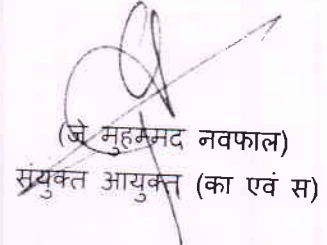 (जे मुहम्मद नवफाल)
संयुक्त आयुक्त (का एवं स)